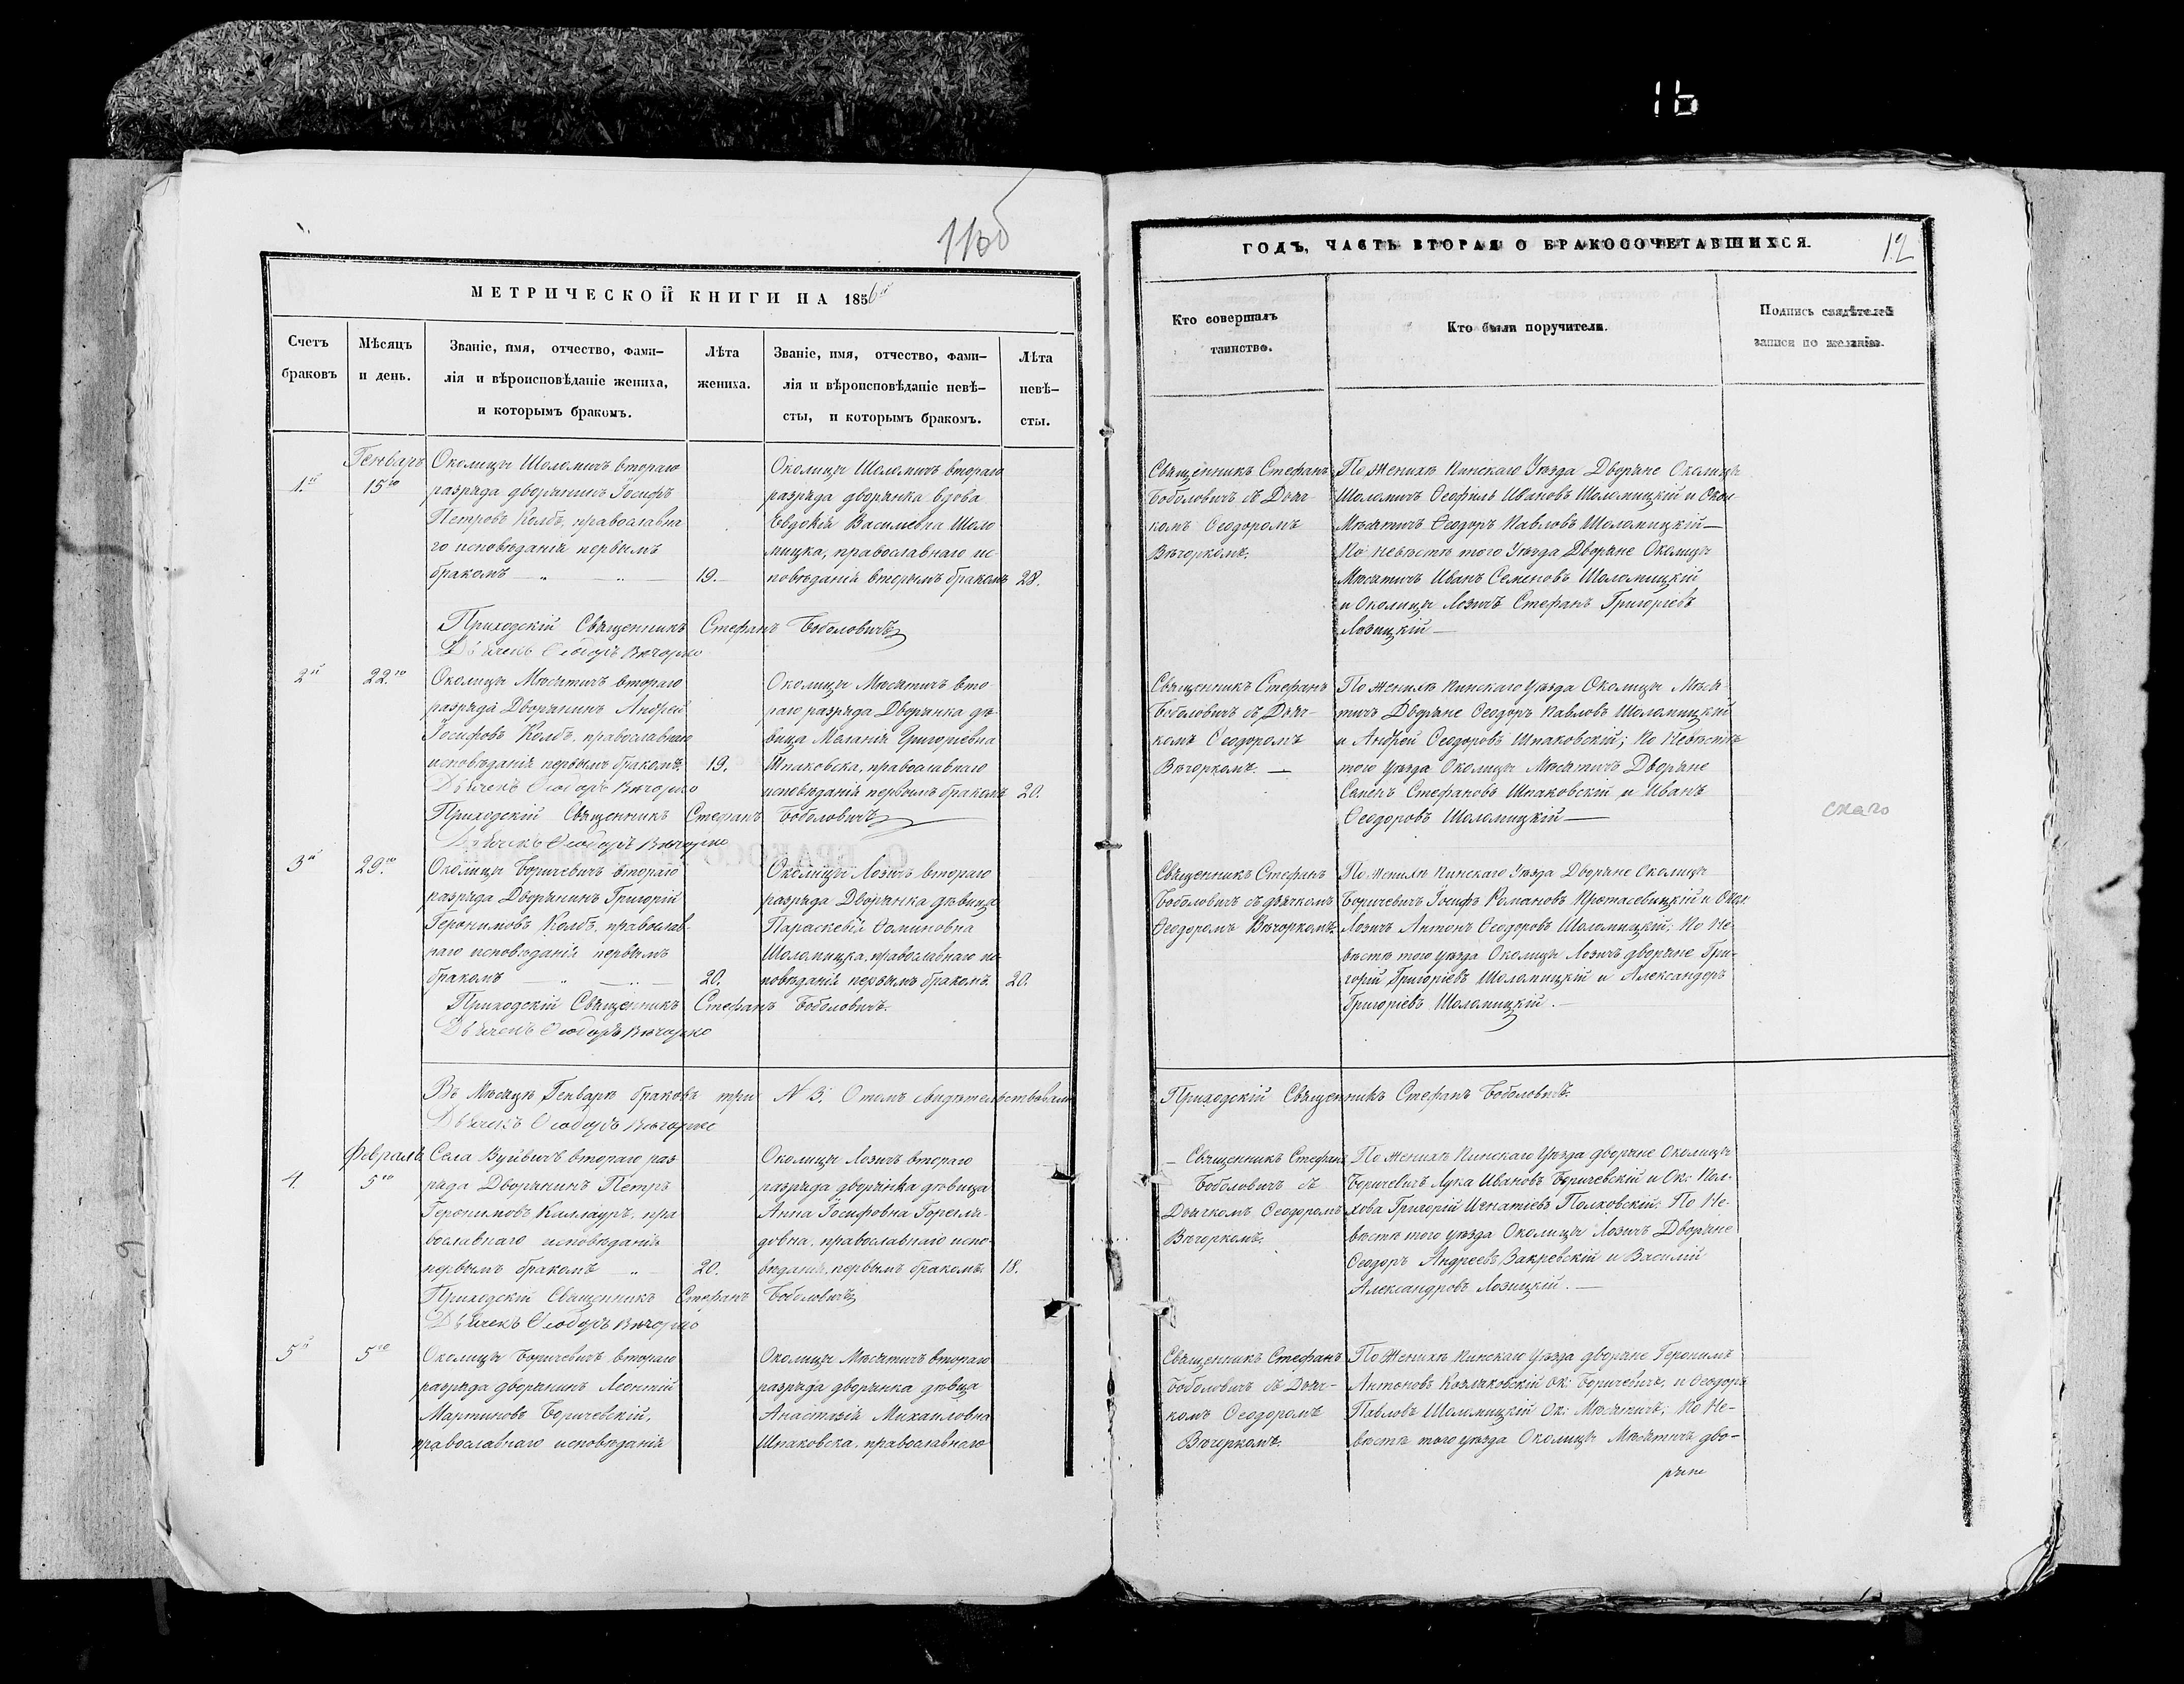 16
11об
МЕТРИЧЕСКОЙ КНИГИ НА 1856й
Счетъ браковъ
Мѣсяцъ и день.
Званіе, имя, отчество, фами-
лія и вѣроисповѣданіе жениха,
и которымъ бракомъ.
Лѣта жениха.
Званіе, имя, отчество, фами-
лія и вѣроисповѣданіе невѣ-
сты, и которымъ бракомъ.
Лѣта невѣ-
сты.
1.й
Генварь
15го
Околицы Шоломичъ втораго
разряда дворянинъ Іосифъ
Петровъ Колбъ, православна
го исповѣданія первымъ
бракомъ — „ „ —
19.
Околицы Шоломичъ втораго
разряда дворянка вдова
Евдокія Васильевна Шоло
мицка, православнаго ис
повѣданія вторымъ бракомъ
28.
Приходскій Священникъ Стефанъ Боболовичъ
Дьячекъ Ѳеодоръ Вѣчорко
2й
22.го
Околицы Мѣсятичъ втораго
разряда Дворянинъ Андрей
Іосифовъ Колбъ, православнаго
исповѣданія первымъ бракомъ.
19.
Околицы Мѣсятичъ вто
раго разряда Дворянка дѣ
вица Меланія Григоріевна
Шпаковска, православнаго
исповѣданія первымъ бракомъ
20.
Дьячекъ Ѳеодоръ Вѣчорко
Приходскій Священникъ Стефанъ Боболовичъ
Дьячекъ Ѳеодоръ Вѣчорко
3й
29.го
Околицы Боричевичъ втораго
разряда Дворянинъ Григорій
Геронимовъ Колбъ, православ-
наго исповѣданія первымъ
бракомъ — „ — „ —
20.
Околицы Лозичъ втораго
разряда Дворянка дѣвица
Параскевія Ѳоминовна
Шоломицка, православнаго ис
повѣданія первымъ бракомъ.
20.
Приходскій Священникъ Стефанъ Боболовичъ.
Дьячекъ Ѳеодоръ Вѣчорко
Въ Мѣсяцѣ Генварѣ браковъ три N 3. О томъ свидѣтельствовали
Дьячекъ Ѳеодоръ Вѣчорко
4.
Февраль
5го
Села Вуйвичъ втораго раз
ряда Дворянинъ Петръ
Геронимовъ Каллауръ, пра
вославнаго исповѣданія
первымъ бракомъ „
20.
Околицы Лозичъ втораго
разряда дворянка дѣвица
Анна Іосифовна
православнаго испо-
вѣданія, первымъ бракомъ.
18.
Приходскій Священникъ Стефанъ Боболовичъ
Дьячекъ Ѳеодоръ Вѣчорко
5й
5го
Околицы Боричевичъ втораго
разряда дворянинъ Леонтій
Мартиновъ Боричевскій,
православнаго исповѣданія
Околицы Мѣсятичъ втораго
разряда дворянка дѣвица
Анастазія Михаиловна
Шпаковска, православнаго
ГОДЪ, ЧАСТЬ ВТОРАЯ О БРАКОСОЧЕТАВШИХСЯ.
12
Кто совершалъ
таинство.
Кто были поручители.
Подпись свидѣтелей
записи по желанію.
Священникъ Стефанъ
Боболовичъ съ Дьяч-
комъ Ѳеодоромъ
Вѣчоркомъ.
По Женихѣ Пинскаго Уѣзда Дворяне Околицы
Шоломичъ Ѳеофилъ Ивановъ Шоломицкій и Окол-
Мѣсятичъ Ѳеодоръ Павловъ Шоломицкій —
По Невѣстѣ того Уѣзда Дворяне Околицы
Мѣсятичъ Иванъ Семеновъ Шоломицкій
и Околицы Лозичъ Стефанъ Григоріевъ
Лозицкій —
Священникъ Стефанъ
Боболовичъ съ Дьяч-
комъ Ѳеодоромъ
Вѣчоркомъ. —
По Женихѣ Пинскаго Уѣзда Околицы Мѣся-
тичъ Дворяне Ѳеодоръ Павловъ Шоломицкій
и Андрей Ѳеодоровъ Шпаковскій; По Невѣстѣ
того уѣзда Околицы Мѣсятичъ Дворяне
Стефановъ Шпаковскій и Иванъ
Ѳеодоровъ Шоломицкій —
скаго
Священникъ Стефанъ
Боболовичъ съ дьячкомъ
Ѳеодоромъ Вѣчоркомъ.
По Женихѣ Пинскаго Уѣзда Дворяне Околицы
Боричевичъ Іосифъ Романовъ Протасевицкій и Окол.
Лозичъ Антонъ Ѳеодоровъ Шоломицкій; По Не-
вѣстѣ того уѣзда Околицы Лозичъ дворяне Гри-
горій Григоріевъ Шоломицкій и Александръ
Григоріевъ Шоломицкій. —
Приходскій Священникъ Стефанъ Боболовичъ.
— Священникъ Стефанъ
Боболовичъ съ
Дьячкомъ Ѳеодоромъ
Вѣчоркомъ.
По Женихѣ Пинскаго Уѣзда дворяне Околицы
Боричевичъ Лука Ивановъ Боричевскій и Ок: Пол-
хова Григорій Игнатіевъ Полховскій. По Не-
вѣстѣ того уѣзда Околицы Лозичъ Дворяне
Ѳеодоръ Андреевъ Закревскій и Василій
Александровъ Лозицкій. —
Священникъ Стефанъ
Боболовичъ съ Дьяч-
комъ Ѳеодоромъ
Вѣчоркомъ.
По Женихѣ Пинскаго Уѣзда дворяне Геронимъ
Антоновъ Козляковскій Ок: Боричевичъ, и Ѳеодоръ
Павловъ Шоломицкій Ок: Мѣсятичъ; По Не-
вѣстѣ того уѣзда Околицы Мѣсятичъ дво-
ряне